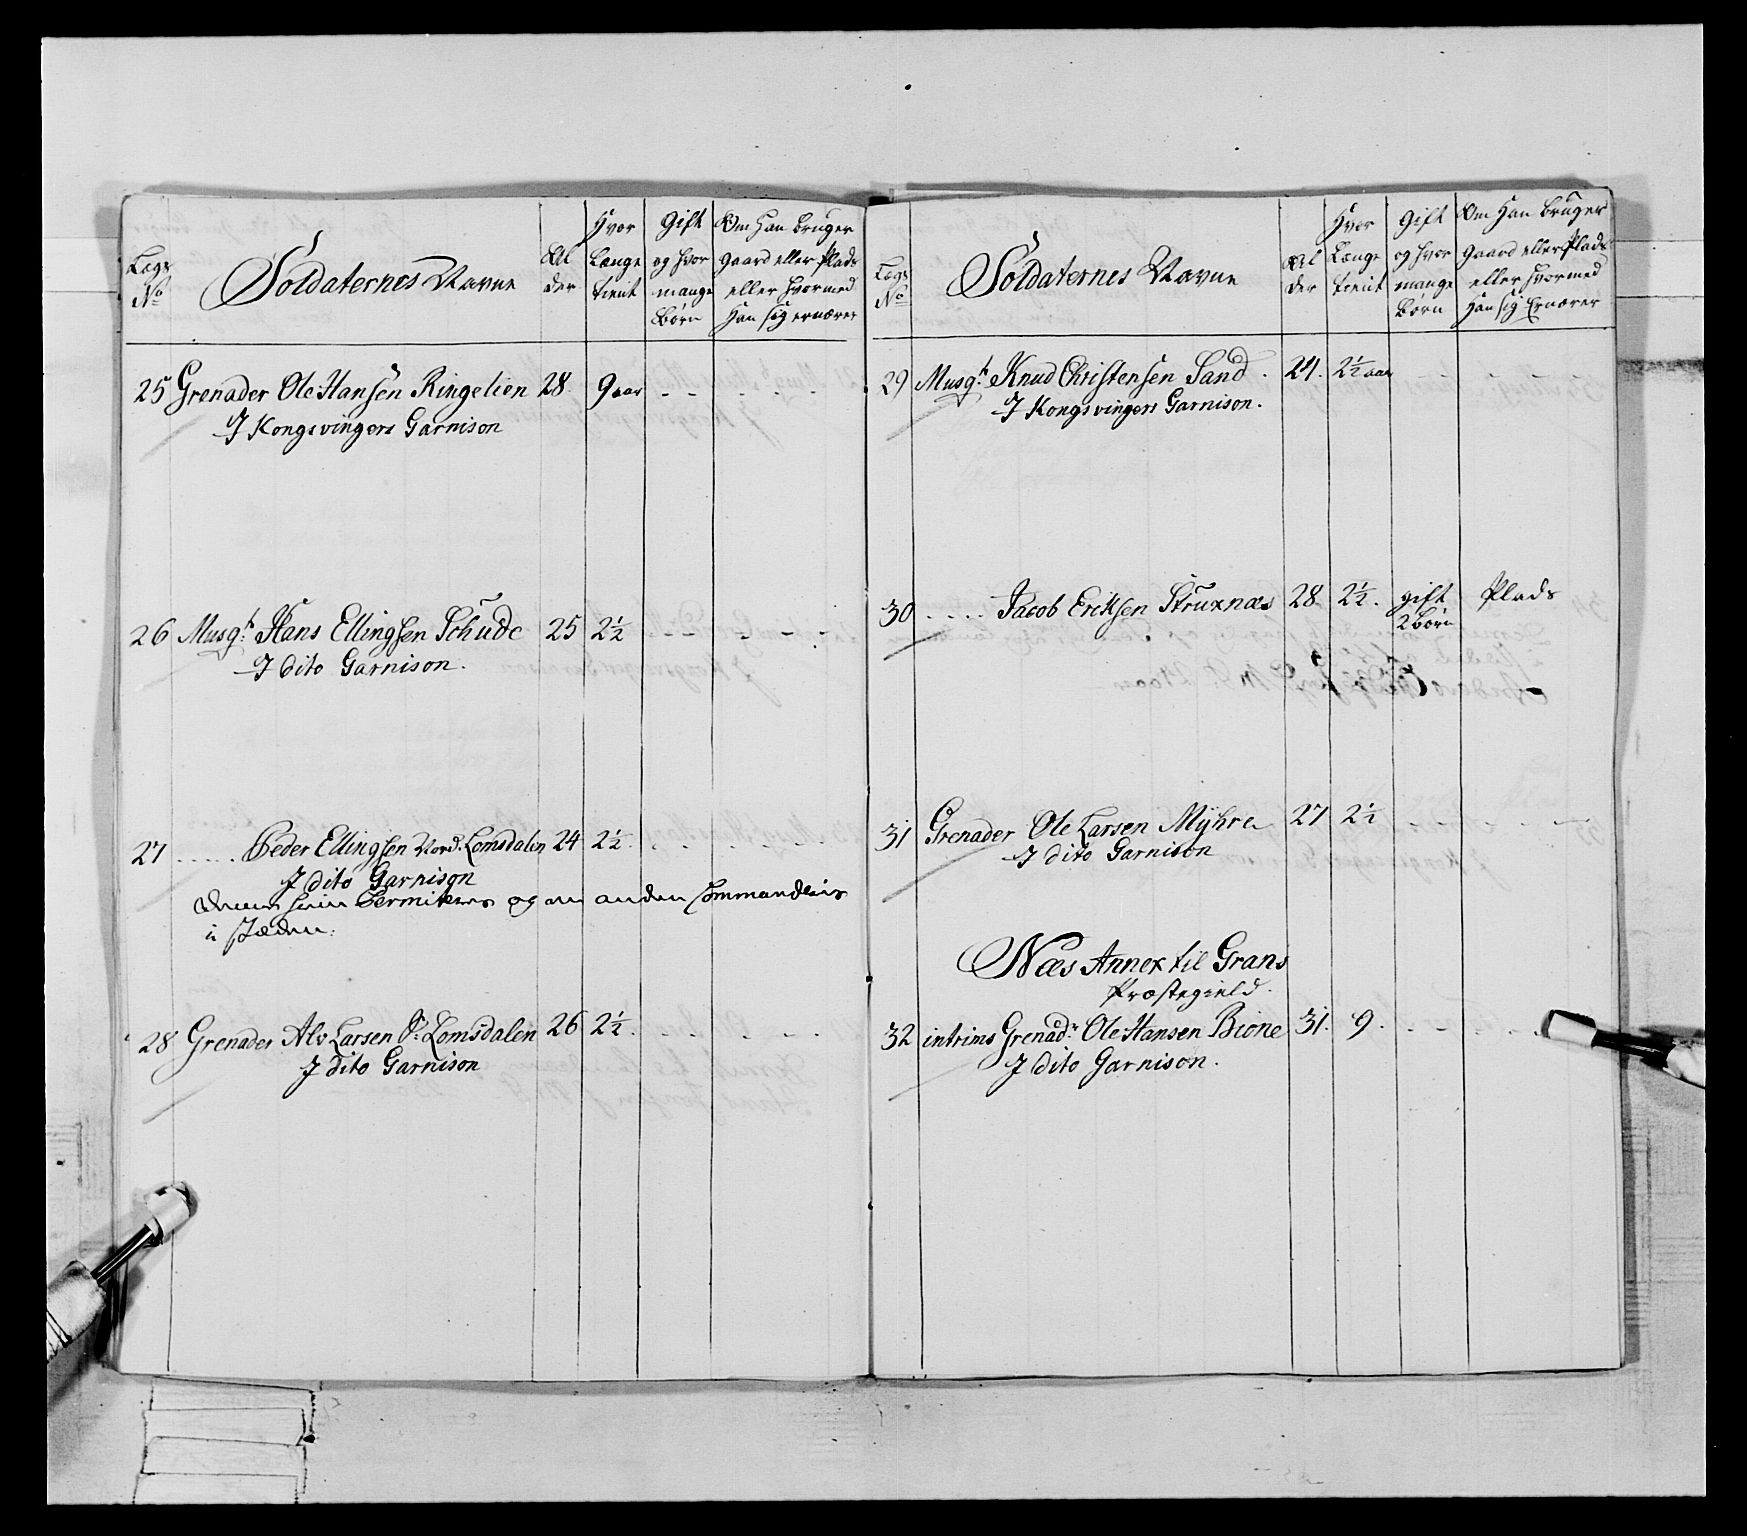 Lægs
No
Soldaternes Navne
Al
der
Hvor
Længe
tient
Gift
og hvor
mange
Børn
Om Han bruger
Gaard eller Plads
eller hvormed
Han sig ernærer
25 Grenader Ole Hansen Ringelien 28. 9 aar - - - - -
J Kongsvingers Garnison
26 Musqt. Hans Ellingsen Schude 25 2½ - - - - -
J dito Garnison.
27 ..... Peder Ellingsen Nord. Lomsdalen 24 2½. - - - - -
J dito Garnison
Permiteres og en anden Commanderis
i stæden.
28 Grenader Alv Larsen Sr. Lomsdalen 26 2½. - - - - -
J dito Garnison
Lægs
No
Soldaternes Navne
Al
der
Hvor
Længe
tient
Gift
og hvor
mange
Børn
Om Han bruger
Gaard eller Plads
eller hvormed
Han sig Ernærer
29 Musqt. Knud Christensen Sand. 24. 2½ aar - - - - -
J Kongsvingers Garnison.
30 ..... Jacob Ericksen Struxnæs 28 2½. gift Plads
2 børn
31 Grenader Ole Larsen Mÿhre 27 2½ - - - - -
J dito Garnison
Næs Annex til Grans
Præstegield.
32 intrims Grenadr. Ole Hansen Bione 31. 9. - - - - -
J dito Garnison.